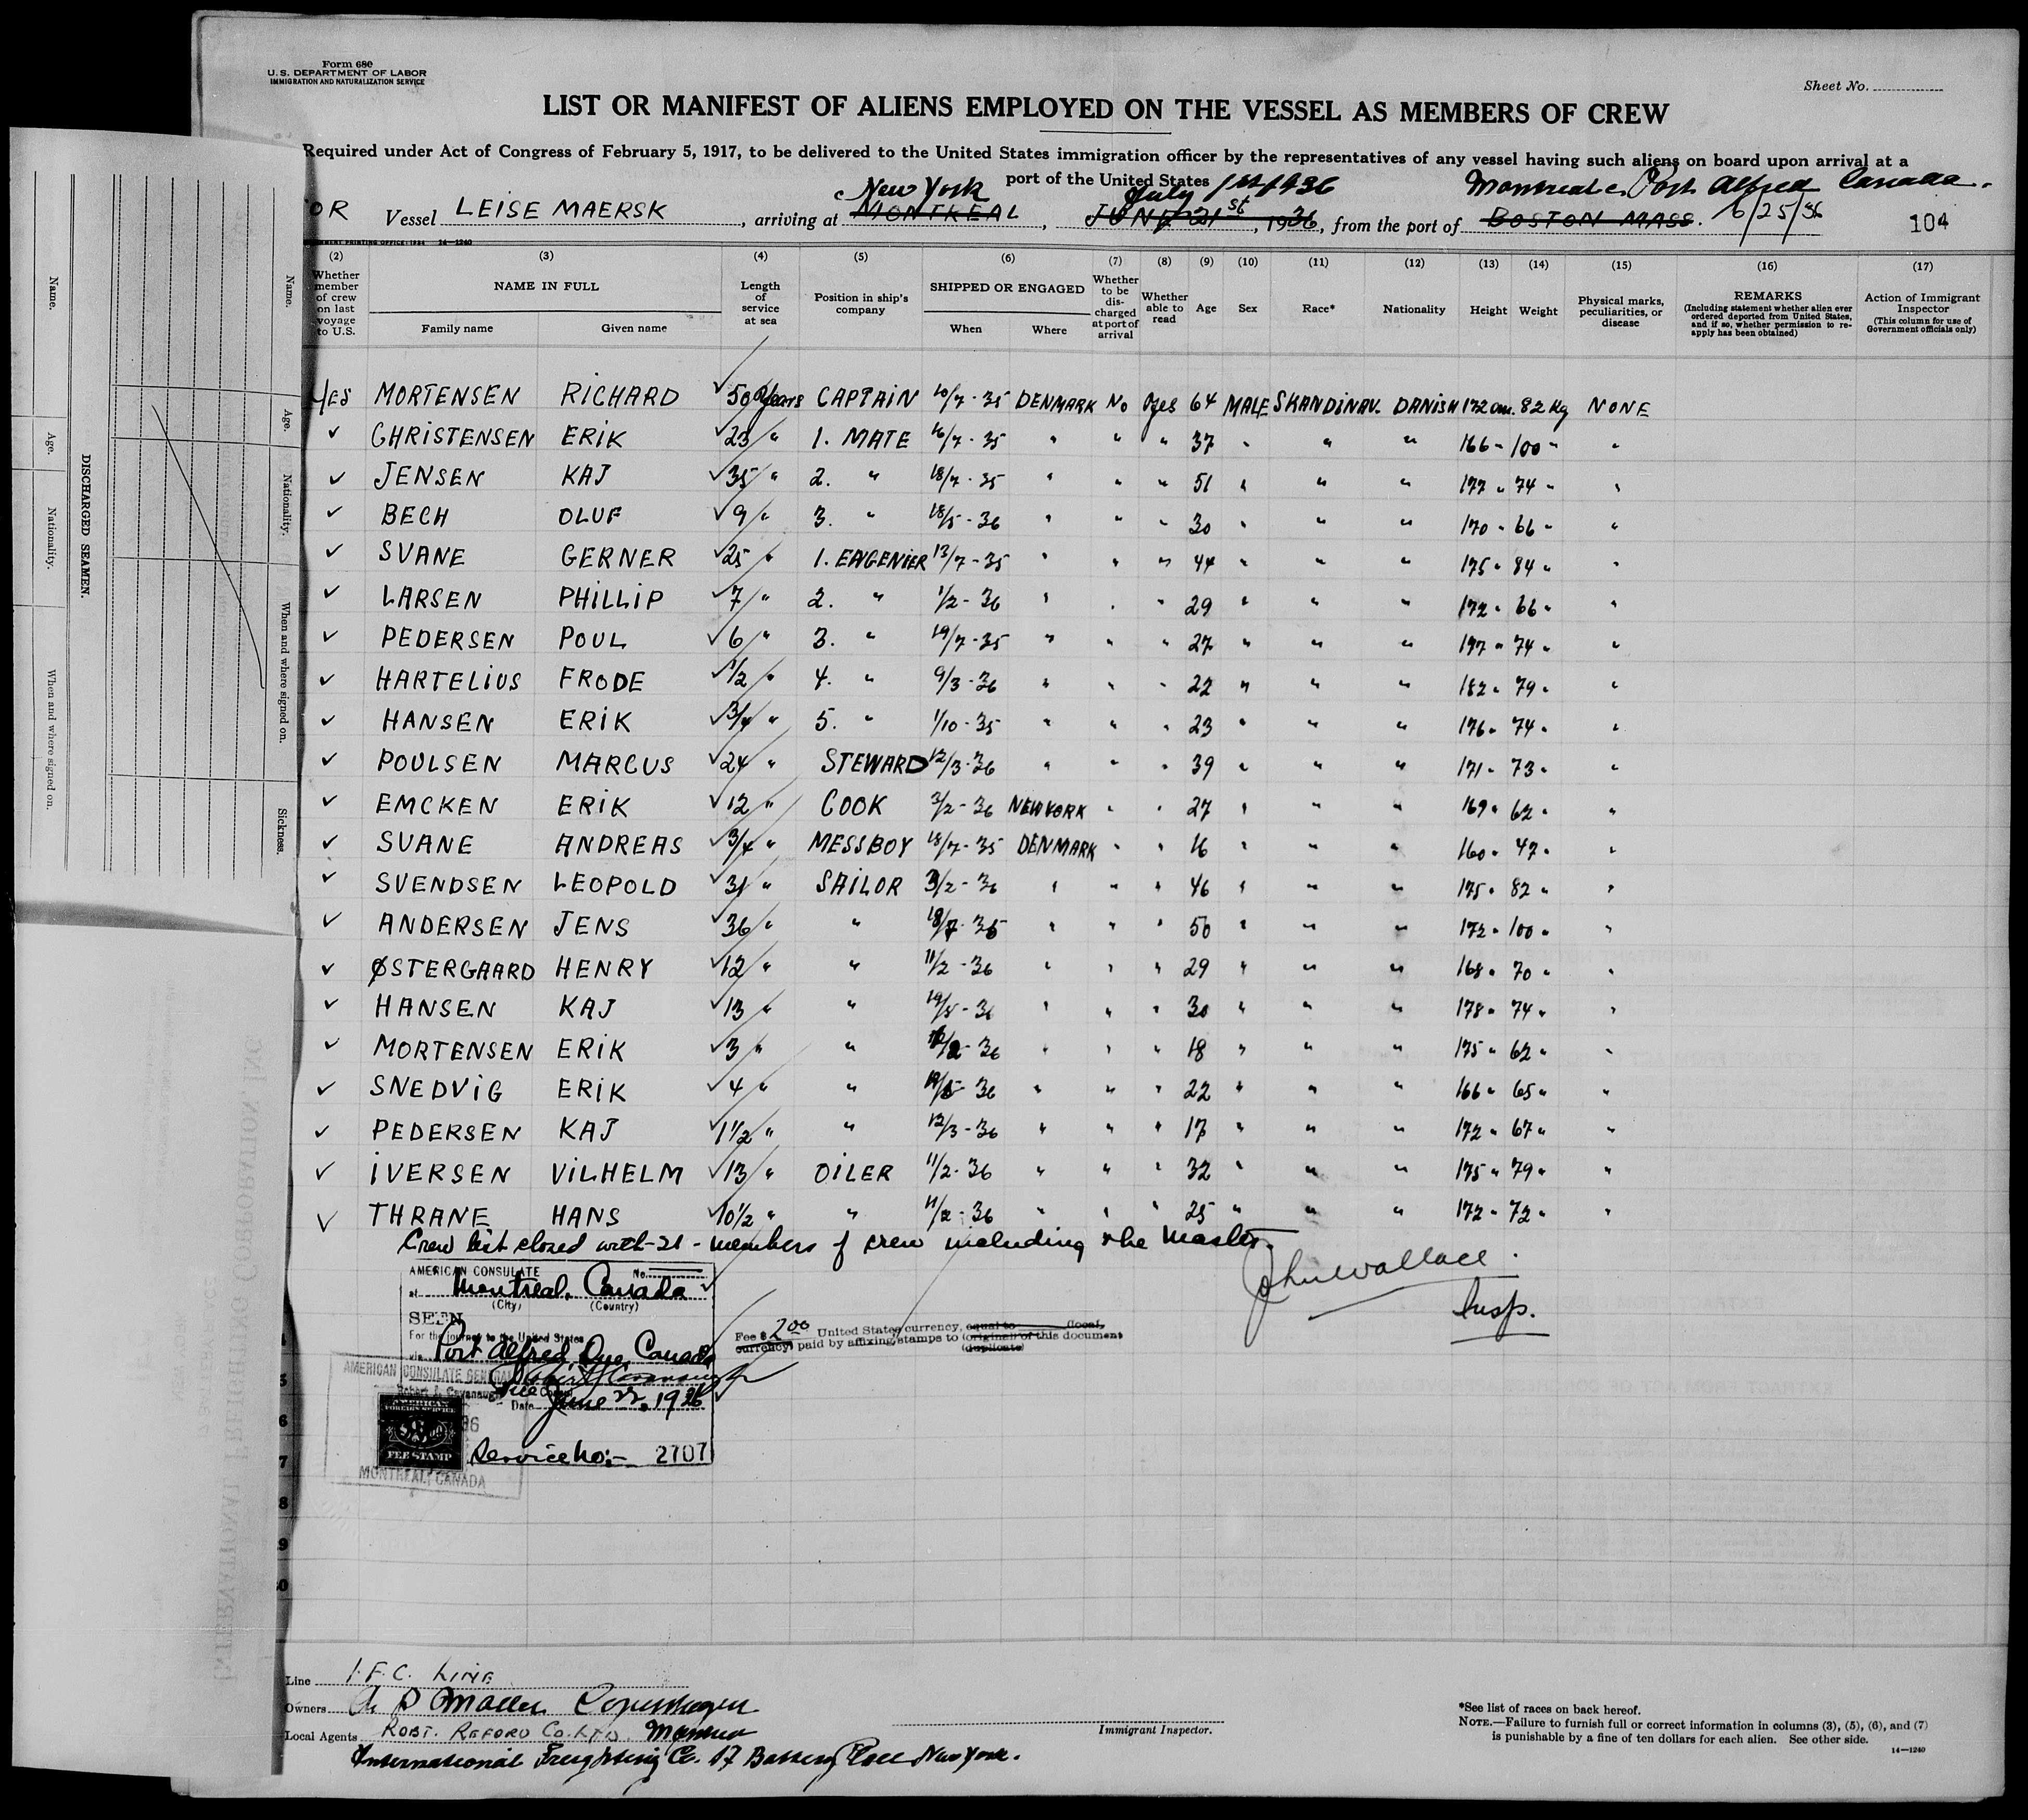 Form 680
U. S. DEPARTMENT OF LABOR
IMMIGRATION AND NATURALIZATION SERVICE
Sheet No.
LIST OR MANIFEST OF ALIENS EMPLOYED ON THE VESSEL AS MEMBERS OF CREW
Required under Act of Congress of February 5, 1917, to be delivered to the United States immigration officer by the representatives of any vessel having such aliens on board upon arrival at a
port of the United States
New York July 1st 1936 Montreal Port Alfred Canada.
OR Vessel LEISE MAERSK, arriving at MONTREAL, JUNE 21st, 1936, from the port of BOSTON MASS. 6/25/36 104
14-1240
(2) Whether member of crew on last voyage to U.S.
(3) NAME IN FULL Family name Given name
(4) Length of service at sea
(5) Position in ship's company
(6) SHIPPED OR ENGAGED When Where
(7) Whether to be discharged at port of arrival
(8) Whether able to read
(9) Age
(10) Sex
(11) Race*
(12) Nationality
(13) Height
(14) Weight
(15) Physical marks, peculiarities, or disease
(16) REMARKS (Including statement whether alien ever ordered deported from United States, and if so, whether permission to reapply has been obtained)
(17) Action of Immigrant Inspector (This column for use of Government officials only)
YES MORTENSEN RICHARD 50 Years CAPTAIN 10/7-35 DENMARK No Yes 64 MALE SKANDINAV. DANISH 172 cm. 82 Kg NONE
✓ CHRISTENSEN ERIK 23 " 1. MATE 16/7-35 " " " 37 " " " 166 " 100 " "
✓ JENSEN KAJ 35 " 2. " 18/7-35 " " " 51 " " " 177 " 74 " "
✓ BECH OLUF 9 " 3. " 18/5-36 " " " 30 " " " 170 " 66 " "
✓ SVANE GERNER 25 " 1. ENGENIER 13/7-35 " " " 44 " " " 175 " 84 " "
✓ LARSEN PHILLIP 7 " 2. " 1/2-36 " " " 29 " " " 172 " 66 " "
✓ PEDERSEN POUL 6 " 3. " 19/7-35 " " " 27 " " " 177 " 74 " "
✓ HARTELIUS FRODE 1/2 " 4. " 9/3-36 " " " 22 " " " 182 " 79 " "
✓ HANSEN ERIK 3/4 " 5. " 1/10-35 " " " 23 " " " 176 " 74 " "
✓ POULSEN MARCUS 24 " STEWARD 12/3-36 " " " 39 " " " 171 " 73 " "
✓ EMCKEN ERIK 12 " COOK 3/2-36 NEWYORK " " 27 " " " 169 " 62 " "
✓ SVANE ANDREAS 3/4 " MESSBOY 18/7-35 DENMARK " " 16 " " " 160 " 47 " "
✓ SVENDSEN LEOPOLD 31 " SAILOR 3/2-36 " " " 46 " " " 175 " 82 " "
✓ ANDERSEN JENS 36 " " 18/7-35 " " " 50 " " " 172 " 100 " "
✓ ØSTERGAARD HENRY 12 " " 11/2-36 " " " 29 " " " 168 " 70 " "
✓ HANSEN KAJ 13 " " 19/5-36 " " " 30 " " " 178 " 74 " "
✓ MORTENSEN ERIK 3 " " 36 " " " 18 " " " 175 " 62 " "
✓ SNEDVIG ERIK 4 " " 36 " " " 22 " " " 166 " 65 " "
✓ PEDERSEN KAJ 1 1/2 " " 12/3-36 " " " 17 " " " 172 " 67 " "
✓ IVERSEN VILHELM 13 " OILER 11/2-36 " " " 32 " " " 175 " 79 " "
✓ THRANE HANS 10 1/2 " " 11/2-36 " " " 25 " " " 172 " 72 " "
Crew list closed with -21- members of crew including the Master.
John Wallace.
Insp.
AMERICAN CONSULATE No.
at Montreal, Canada
(City) (Country)
SEEN
For the journey to the United States
via Port Alfred, Que, Canada
Robert J. Cavanaugh
Vice Consul
Date June 22, 1936
Fee $ 2.00 United States currency, equal to (local
currency) paid by affixing stamps to (original) of this document
(duplicate)
AMERICAN CONSULATE GENERAL
MONTREAL, CANADA
AMERICAN FOREIGN SERVICE
FEE STAMP
Service No:- 2707
4
5
6
7
8
9
0
Line I. F. C. LINE
Owners A. P. Moller Copenhagen
Local Agents ROBT. REFORD CO. LTD. Montreal
International Freighting Co. 17 Battery Place New York.
Immigrant Inspector.
*See list of races on back hereof.
NOTE.—Failure to furnish full or correct information in columns (3), (5), (6), and (7)
is punishable by a fine of ten dollars for each alien. See other side.
14-1240
DISCHARGED SEAMEN.
Name.
Age.
Nationality.
When and where signed on.
Sickness.
Name.
Age.
Nationality.
When and where signed on.
INTERNATIONAL FREIGHTING CORPORATION, INC